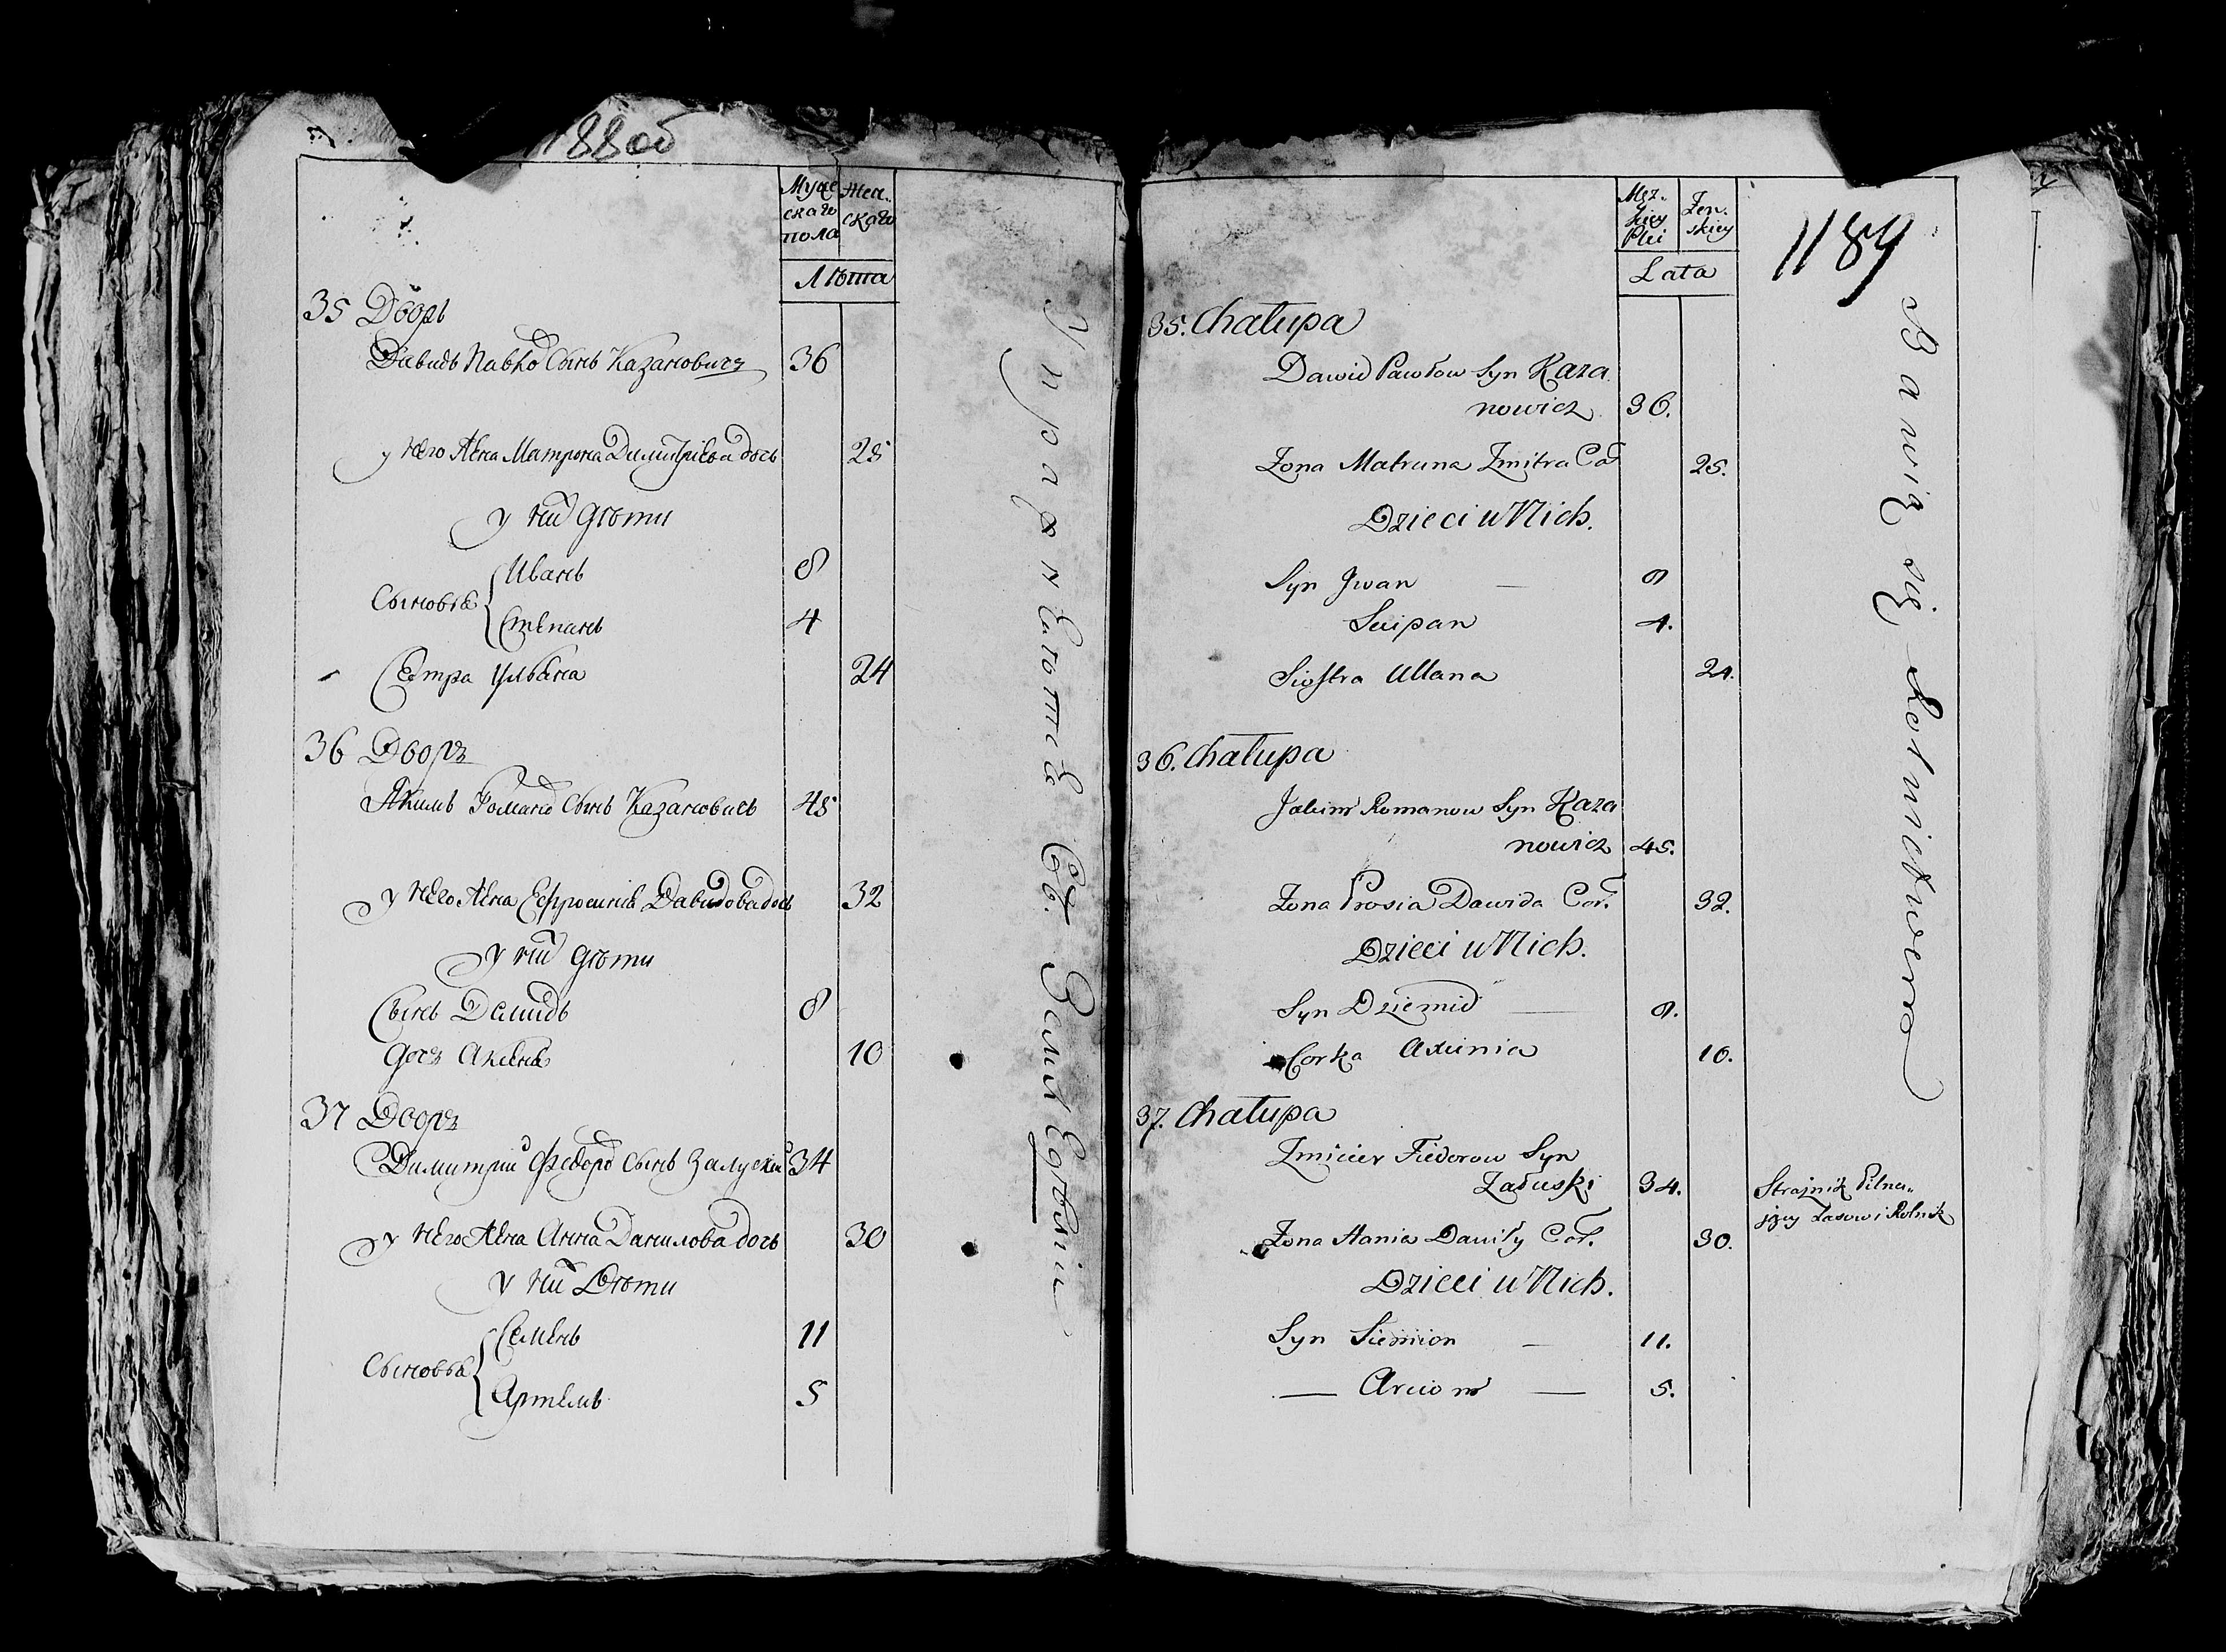 188об
Муже
скаго
пола
Жен-
скаго
Лѣта
35 Дворъ
Давидъ Павло Сынъ Казановичъ 36
у него Жена Матрона Димитріева дочь 25
у ни Дѣти
Сыновья
Иванъ 8
Степанъ 4
Сестра Ульяна 24
36 Дворъ
Якимъ Романо Сынъ Казановичь 45
у него Жена Ефросинья Давидова дочь 32
у ни дѣти
Сынъ Демидъ 8
дочь Аксенья 10
37 Дворъ
Димитрий Федоро сынъ Залуский 34
у него Жена Анна Данилова дочь 30
у ни Дѣти
Сыновья
Семенъ 11
Артемъ 5
Упражнеюте Сѧ. Землѣделіи
Męz-
kiey
Płci
Żen-
skiey
Lata
1189
35. Chałupa
Dawid Pawłow Syn Kaza
nowicz 36.
Żona Matruna Zmitra Cór 25.
Dzieci u Nich.
Syn Jwan — 8
Scipan 4.
Siostra Ullana 24.
36. Chałupa
Jakim Romanow Syn Kaza
nowicz 45.
Żona Prosia Dawida Cor. 32.
Dzieci u Nich.
Syn Dziemid — 8.
Corka Axinia 10.
37. Chałupa
Zmicier Fiedorow Syn
Załuski 34.
Strażnik Pilnu-
jący Lasow i Rolnik
Żona Hania Daniły Cór. 30.
Dzieci u Nich.
Syn Siemion — 11.
— Arciom — 5.
Bawią się Rolnictwem